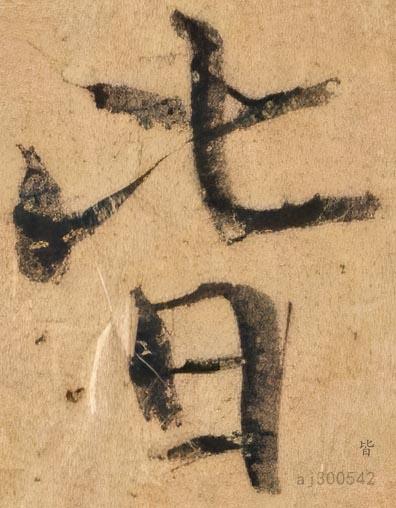 皆
皆
aj300542